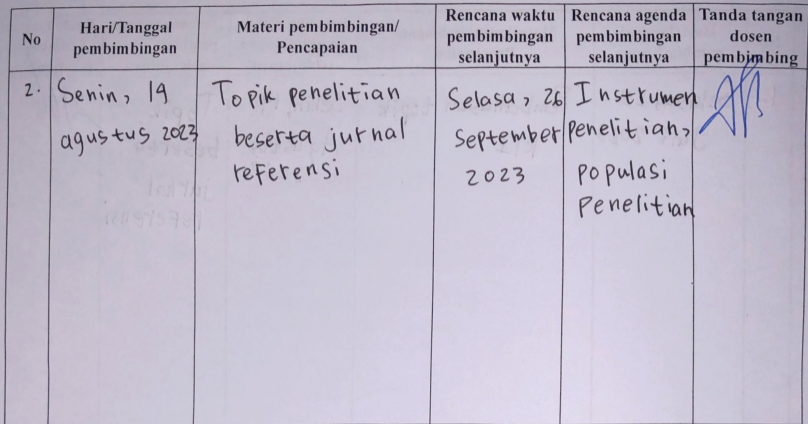 No
Hari/Tanggal
pembimbingan
Materi pembimbingan/
Pencapaian
Rencana waktu
pembimbingan
selanjutnya
Rencana agenda
pembimbingan
selanjutnya
Tanda tangan
dosen
pembimbing
2.
Senin, 14
agustus 2023
Topik penelitian
beserta jurnal
referensi
Selasa, 26
September
2023
Instrumen
penelitian,
populasi
penelitian